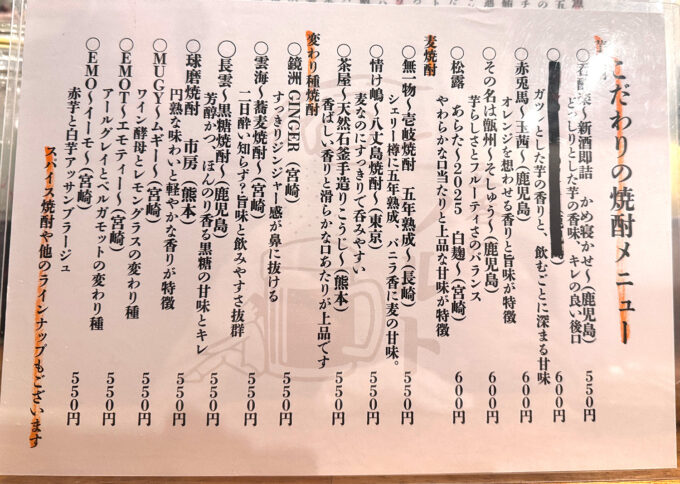 こだわりの焼酎メニュー
かめ寝かせ～(鹿児島) 550円
どっしりとした芋の香味、キレの良い後口
600円
ガツッとした芋の香りと、飲むごとに深まる甘味
〇赤兎馬～玉茜～(鹿児島) 600円
オレンジを想わせる香りと旨味が特徴
〇その名は甑州～そしゅう～(鹿児島) 600円
芋らしさとフルーティさのバランス
〇松露 あらた～2025 白麹～(宮崎) 600円
やわらかな口当たりと上品な甘味が特徴
麦焼酎
〇無一物～壱岐焼酎 五年熟成～(長崎) 550円
シェリー樽に五年熟成、バニラ香に麦の甘味。
〇情け嶋～八丈島焼酎～(東京) 550円
麦なのにすっきりで呑みやすい
〇茶屋～天然石釜手造りこうじ～(熊本) 550円
香ばしい香りと滑らかな口あたりが上品です
変わり種焼酎
〇鏡洲 GINGER (宮崎) 550円
すっきりジンジャー感が鼻に抜ける
〇雲海～蕎麦焼酎～(宮崎) 550円
二日酔い知らず?旨味と飲みやすさ抜群
〇長雲～黒糖焼酎～(鹿児島) 550円
芳醇かつ、ほんのり香る黒糖の甘味とキレ
〇球磨焼酎 市房 (熊本) 550円
円熟な味わいと軽やかな香りが特徴
〇MUGY～ムギー～(宮崎) 550円
ワイン酵母とレモングラスの変わり種
〇EMOT～エモティー～(宮崎) 550円
アールグレイとベルガモットの変わり種
〇EMO～イーモ～(宮崎) 550円
赤芋と白芋アッサンブラージュ
スパイス焼酎や他のラインナップもございます